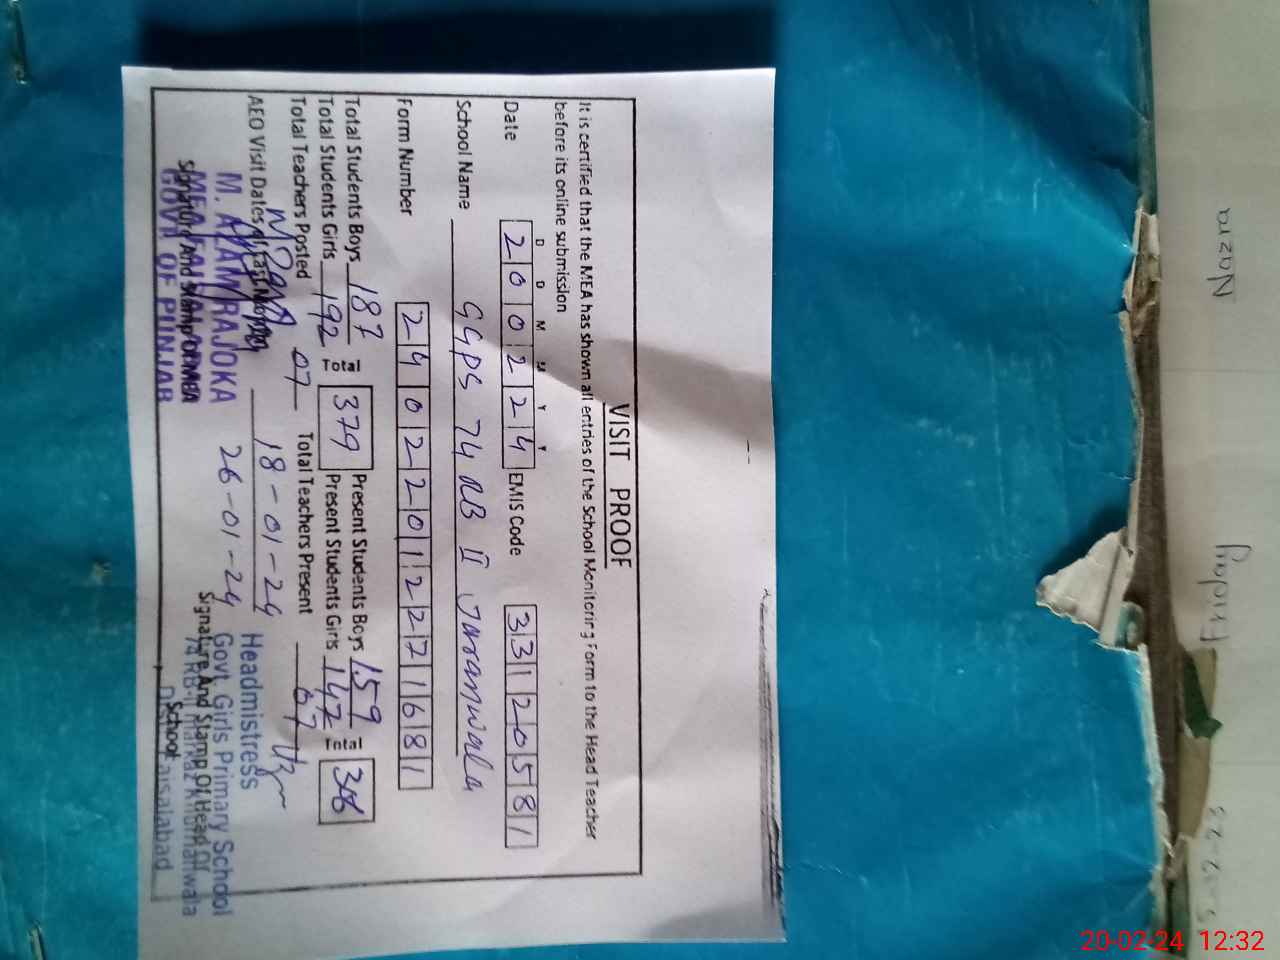 VISIT PROOF
It is certified that the MEA has shown all entries of the School Monitoring Form to the Head Teacher
before its online submission
D D M M Y Y
Date 200224 EMIS Code 33120581
School Name GGPS 74 RB II Jaranwala
Form Number 24022012271681
Total Students Boys 187 Total 379 Present Students Boys 159 Total
Total Students Girls 192 Present Students Girls
Total Teachers Posted 07 Total Teachers Present 07
AEO Visit Dates of Last Month 18-01-24
26-01-24
M. AZAM RAJOKA
MEA FAISALABAD
GOVT OF PUNJAB
Signature And Stamp Of MEA
Headmistress
Govt. Girls Primary School
74 RB-II Markaz Khurrianwala
Distt Faisalabad
Signature And Stamp Of Head Of
School
Nazra
Friday
20-02-24 12:32